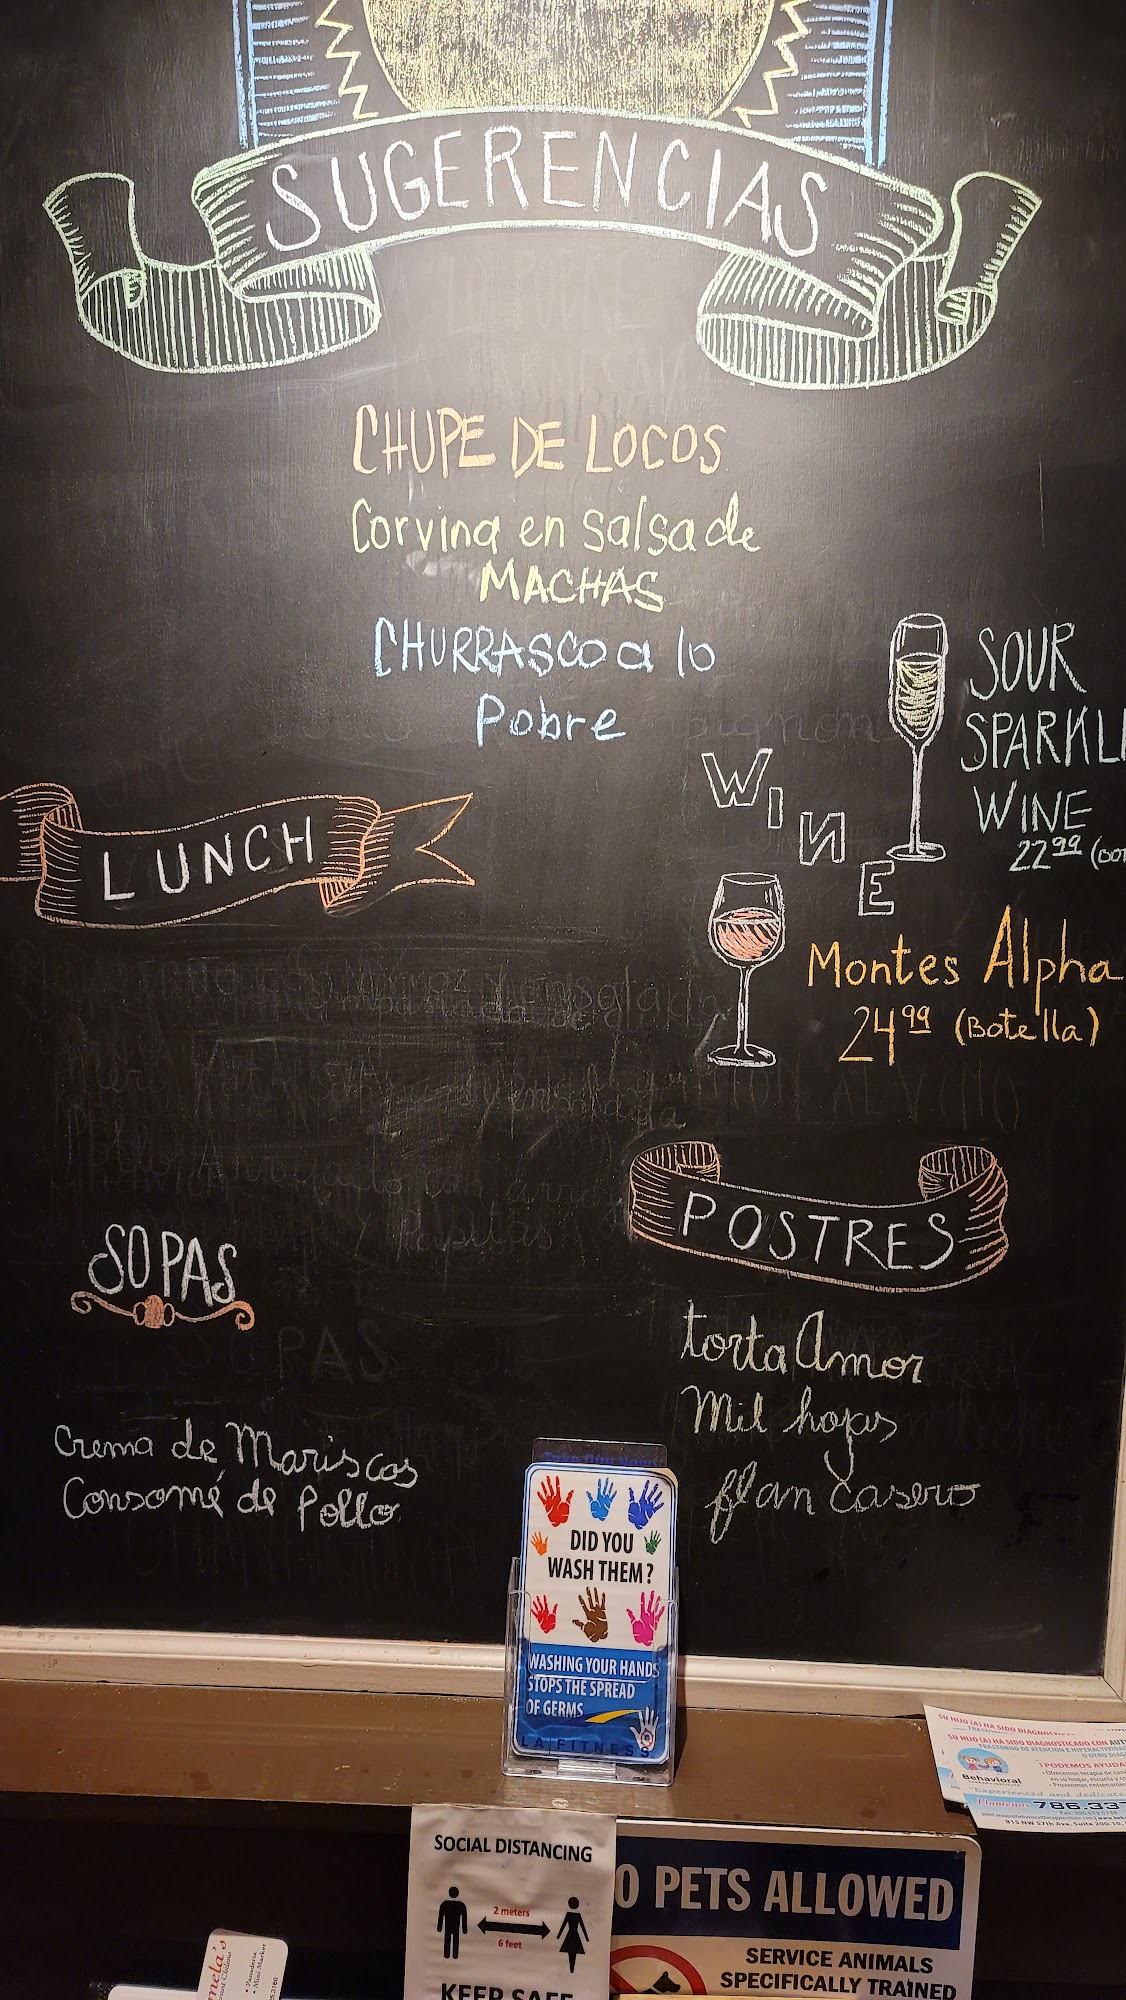 SUGERENCIAS
CHUPE DE LOCOS
Corvina en salsa de
MACHAS
CHURRASCO a lo
Pobre
SOUR
SPARKLI
WINE
22.99
WINE
Montes Alpha
24.99 (Botella)
LUNCH
SOPAS
Crema de Mariscos
Consomé de Pollo
POSTRES
torta Amor
Mil hojas
flan casero
DID YOU
WASH THEM?
WASHING YOUR HANDS
STOPS THE SPREAD
OF GERMS
LA FITNESS
SU HIJO (A) HA SIDO DIAGNOSTICADO CON
¡PODEMOS AYUDA
Behavioral
"Experienced and dedicate
786.33
815 NW 57th Ave, Suite 200-10,
SOCIAL DISTANCING
2 meters
6 feet
KEEP SAFE
O PETS ALLOWED
SERVICE ANIMALS
SPECIFICALLY TRAINED
mela's
Panaderia
Mini Market